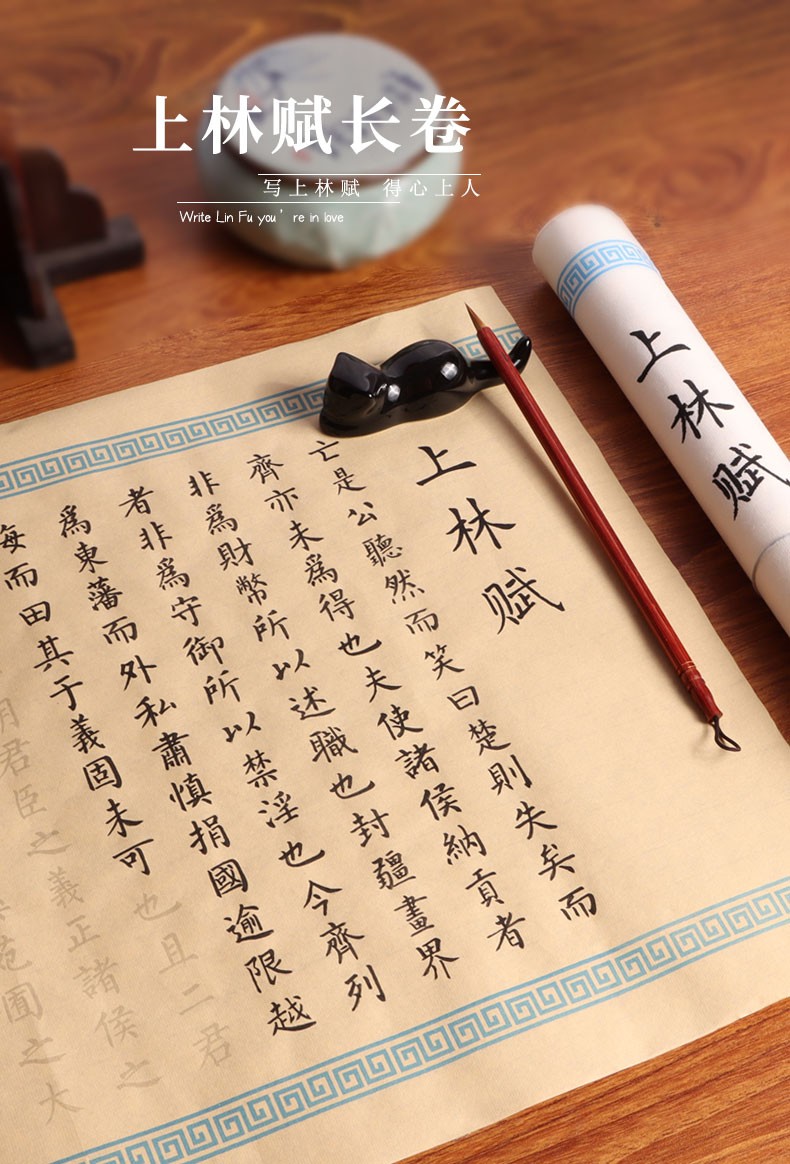 上林赋长卷
写上林赋 得心上人
Write Lin Fu you're in love
上林赋
上林赋
亡是公聽然而笑曰楚則失矣而
齊亦未爲得也夫使諸侯納貢者
非爲財幣所以述職也封疆畫界
者非爲守御所以禁淫也今齊列
爲東藩而外私肅慎捐國逾限越
海而田其于義固未可也且二君
明君臣之義正諸侯之
苑囿之大